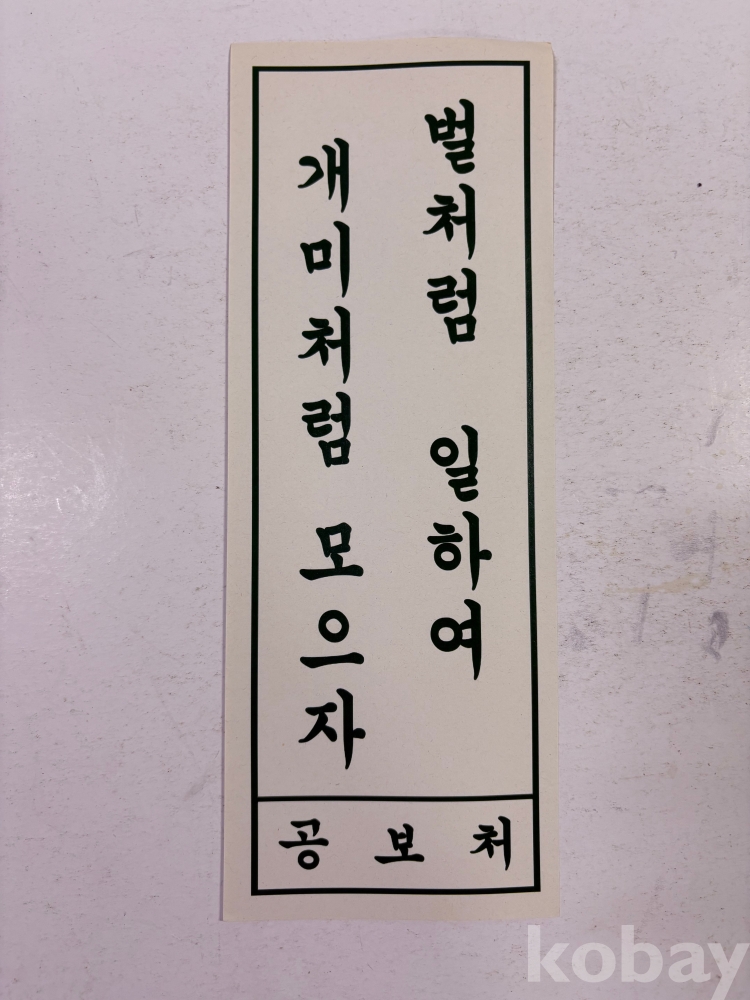 벌처럼 일하여
개미처럼 모으자
공보처
kobay